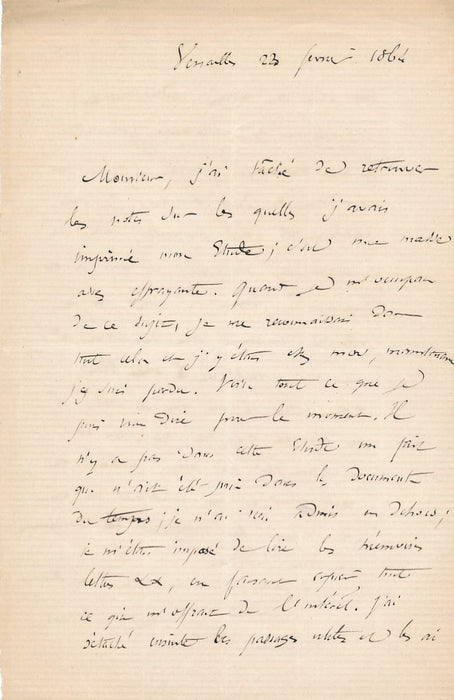 Versailles 23 février 1864
Monsieur, j'ai tâché de retrouver
les notes sur les quelles j'avais
imprimé mon Etude ; c'est une masse
assez effrayante. Quand je m'occupais
de ce sujet, je me reconnaissais dans
tout cela et j'y étais chez moi, maintenant
j'y suis perdu. Voici tout ce que je
puis vous dire pour le moment. Il
n'y a pas dans cette Etude un fait
qui n'ait été pris dans les documents
du temps ; je n'ai rien admis en dehors ;
je m'étais imposé de lire les mémoires
lettres &&, en faisant copier tout
ce qui m'offrait de l'intérêt. J'ai
détaché ensuite les passages utiles et les ai